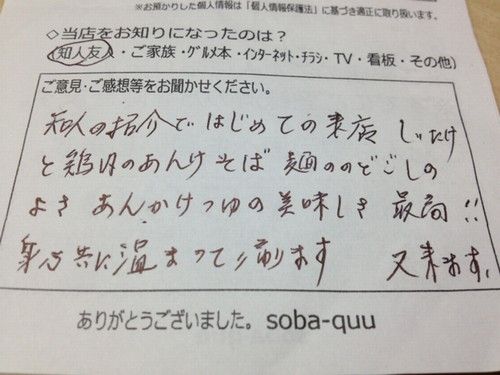 ※お預かりした個人情報は「個人情報保護法」に基づき適正に取り扱います。
◇当店をお知りになったのは？
(知人友人・ご家族・グルメ本・インターネット・チラシ・TV・看板・その他)
ご意見・ご感想等をお聞かせください。
知人の紹介ではじめての来店 しいたけ
と鶏肉のあんけそば 麺ののどごしの
よさ あんかけつゆの美味しさ 最高!!
身心共に温まって 又来ます。
ありがとうございました。soba-quu